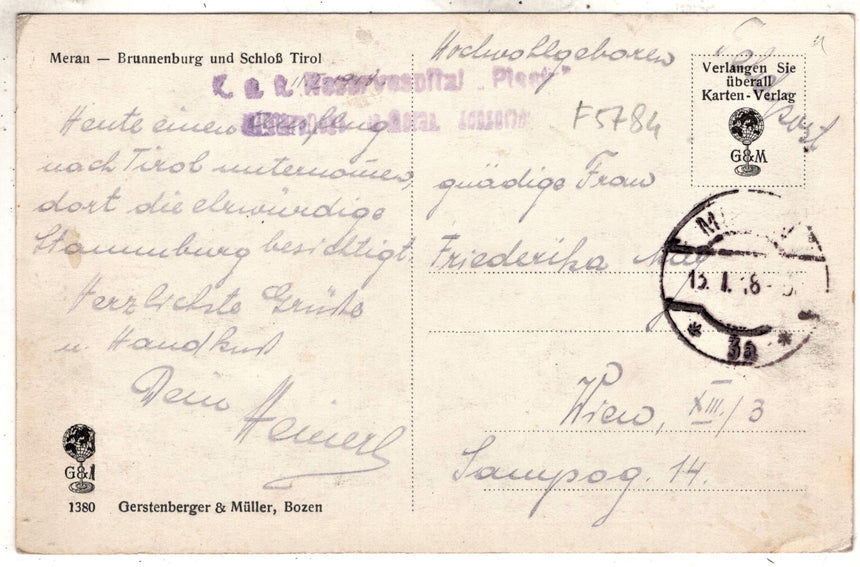 Meran — Brunnenburg und Schloß Tirol
k. u. k. Reservespital
Heute einen
nach Tirol unternommen,
dort die ehrwürdige
Stammburg besichtigt.
Herzlichste Grüße
u Handkuß
Dein
Heinerl
G&M
1380 Gerstenberger & Müller, Bozen
Hochwohlgeboren
Feldpost
Verlangen Sie
überall
Karten-Verlag
G&M
F5784
gnädige Frau
Friederika
13. I. 18
3a
Wien, XIII./3
14.